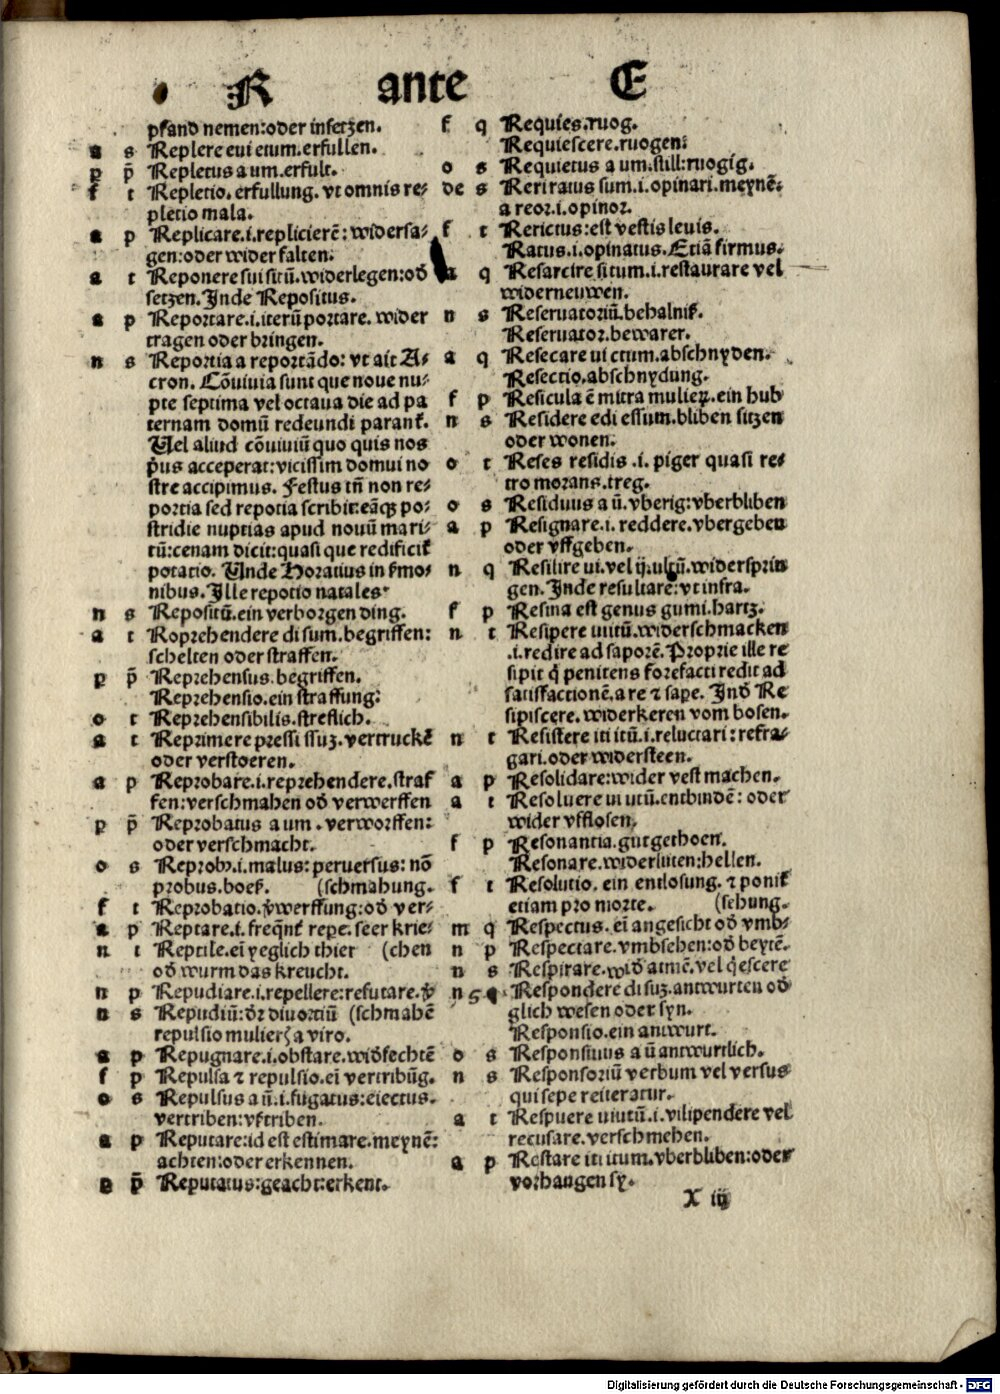 R ante E
pfand nemen:oder insetzen.
a s Replere eui etum.erfullen.
p p̄ Repletus a um.erfult.
f t Repletio.erfullung. vt omnis re-
pletio mala.
a p Replicare.i.replicierē: widersa-
gen:oder wider falten:
a t Reponere sui sitū.widerlegen:od̄
setzen.Inde Repositus.
a p Reportare.i.iterū portare. wider
tragen oder bringen.
n s Reportia a reportādo: vt ait A-
cron. Cōuiuia sunt que noue nu-
pte septima vel octaua die ad pa
ternam domū redeundi parant̄.
Uel aliud cōuiuiū quo quis nos
p̄us acceperat:vicissim domui no
stre accipimus. Festus tn̄ non re-
portia sed repotia scribit:eāqꝫ po-
stridie nuptias apud nouū mari-
tū:cenam dicit:quasi que redificit̄
potatio. Unde Horatius in s̄mo-
nibus.Ille repotio natales.
n s Repositū.ein verborgen ding.
a t Roprehendere di sum.begriffen:
schelten oder straffen.
p p̄ Reprehensus.begriffen.
Reprehensio.ein straffung:
o t Reprehensibilis.streflich.
a t Reprimere pressi ssuꝫ.vertruckē
oder verstoeren.
a p Reprobare.i.reprehendere.straf
fen:verschmahen od̄ verwerffen
p p̄ Reprobatus a um.verworffen:
oder verschmacht.
o s Reprobꝰ.i.malus:peruersus:nō
probus.boeß. (schmahung.
f t Reprobatio.v̄werffung:od̄ ver-
a p Reptare.f.freqn̄t repe.seer krie-
n t Reptile.eī yeglich thier (chen
od̄ wurm das kreucht.
n p Repudiare.i.repellere:refutare.v̄
n s Repudiū:dr̄ diuortiū (schmahē
repulsio mulieꝝ a viro.
a p Repugnare.i.obstare.wid̄fechtē
f p Repulsa ⁊ repulsio.eī vertribūg.
o s Repulsus a ū.i.fugatus:eiectus.
vertriben:v̄triben.
a p Reputare:id est estimare.meynē:
achten:oder erkennen.
p p̄ Reputatus:geacht:erkent.
f q Requies.ruog.
Requiescere.ruogen:
o s Requietus a um.still:ruogig.
de s Reriratus sum.i.opinari.meynē.
a reor.i.opinor.
f t Rerictus:est vestis leuis.
Ratus.i.opinatus.Etiā firmus.
a q Resarcire si tum.i.restaurare vel
widerneuwen.
n s Reseruatoriū.behalniß.
Reseruator.bewarer.
a q Resecare ui ctum.abschnyden.
Resectio.abschnydung.
f p Resicula ē mitra mulieꝝ.ein hub
n s Residere edi essum.bliben sitzen
oder wonen:
o t Reses residis .i. piger quasi re-
tro morans.treg.
o s Residuus a ū.vberig:vberbliben
a p Resignare.i. reddere.vbergeben
oder vffgeben.
n q Resilire ui.vel ij.ultū.widersprin
gen.Inde resultare:vt infra.
f p Resina est genus gumi.hartz.
n t Resipere uiuitū.widerschmacken
.i.redire ad saporē.Proprie ille re
sipit q̄ penitens forefacti redit ad
satisfactionē.a re ⁊ sape. Ind̄ Re
sipiscere.widerkeren vom bosen.
n t Resistere iti itū.i.reluctari:refra-
gari.oder widersteen.
a p Resolidare:wider vest machen.
a t Resoluere ui utū.entbindē: oder
wider vfflosen.
f p Resonantia.gut gethoen.
Resonare.widerluten:hellen.
f t Resolutio. ein entlosung. ⁊ ponit̄
etiam pro morte. (sehung.
m q Respectus. eī angesicht od̄ vmb-
n p Respectare.vmbsehen:od̄ beytē.
n s Respirare.wid̄ atmē.vel q̄escere
n s q Respondere di suꝫ.antwurten od̄
glich wesen oder syn.
Responsio.ein antwurt.
o s Responsiuus a ū antwurtlich.
n s Responsoriū verbum vel versus
qui sepe reiteratur.
a t Respuere uiutū.i.vilipendere vel
recusare.verschmehen.
a p Restare iti itum.vberbliben:oder
vorhangen sy.
X iij
Digitalisierung gefördert durch die Deutsche Forschungsgemeinschaft - DFG